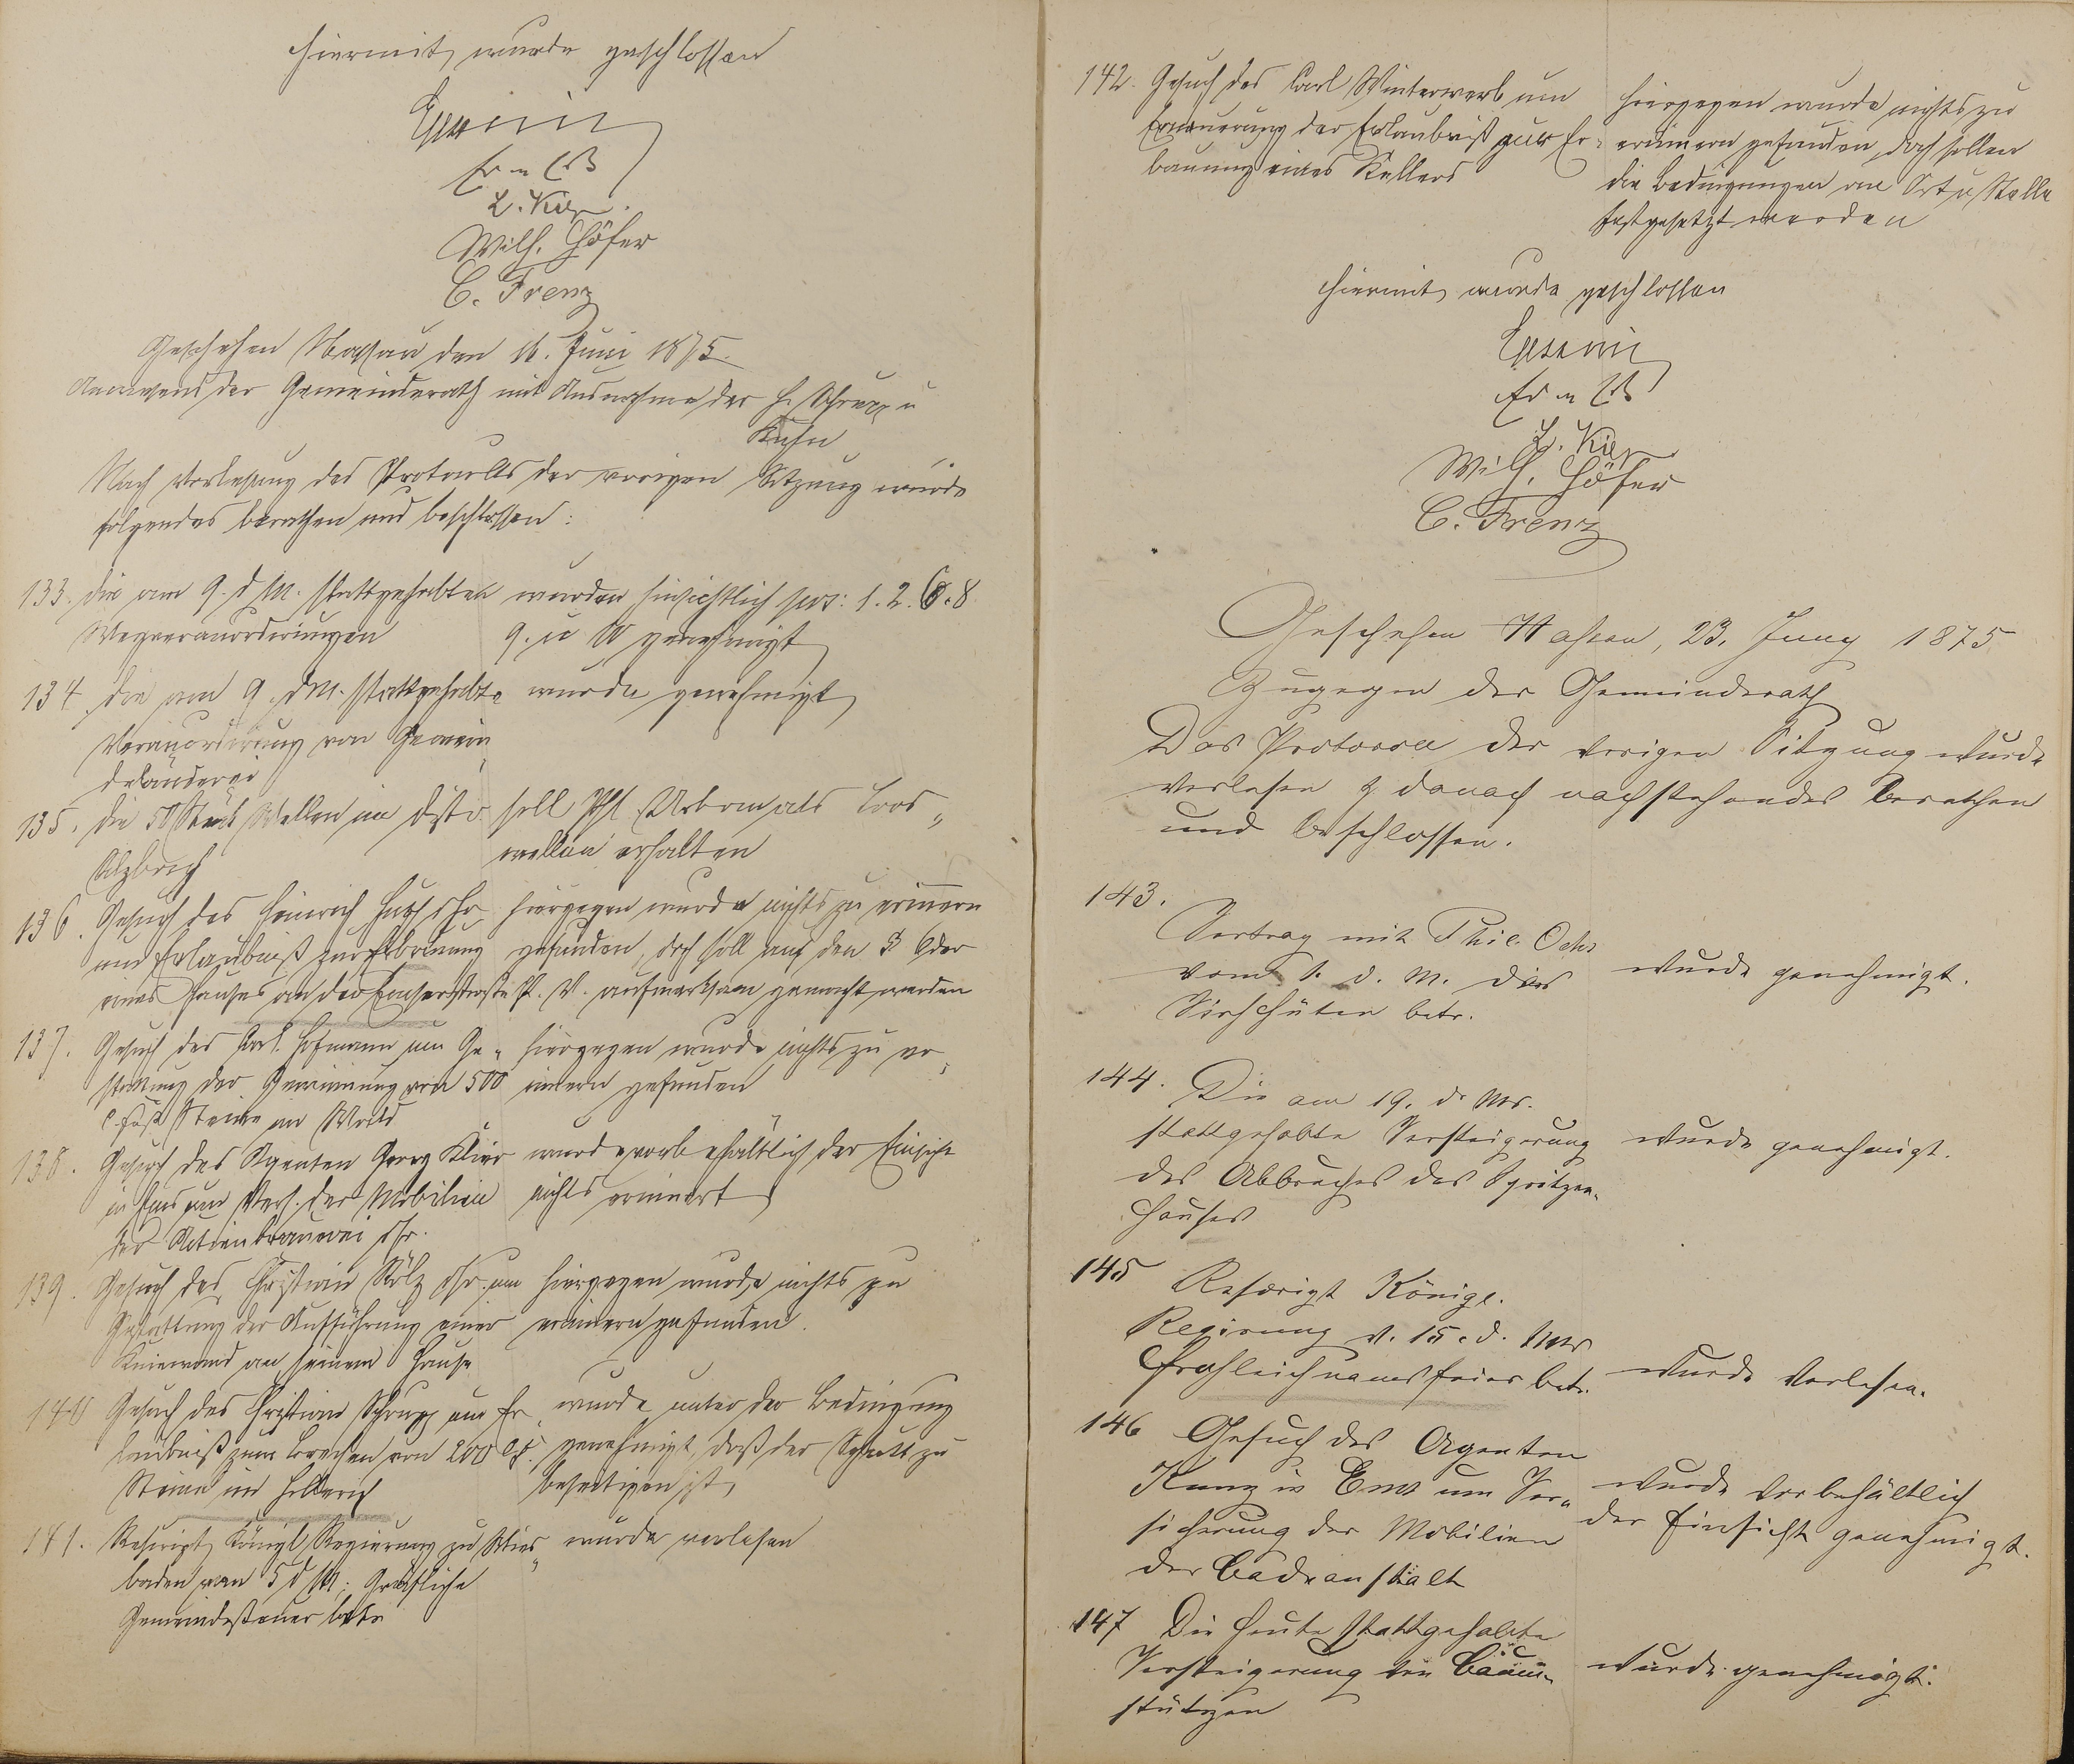 hiermit wurde geschlossen
L. Kiep.
Wilh. Höfer
C. Frenz
Geschehen Nassau den 16. Juni 1875.
Anwesend der Gemeinderath mit Ausnahme der H. Schrupp u
Kuhn
Nach Verlesung des Protocolls der vorigen Sitzung wurde
folgendes berathen und beschlossen:
133. die am 9. d M. stattgehabten
Wegveraccordirungen
wurden hinsichtlich pos: 1. 2. 6. 8
9. u 10 genehmigt
134 die am 9. d M. stattgehabte
Veraccordirung von Gemein
deländerei
wurde genehmigt
135. die 50 Stück Wellen im Distr.
soll Phl. Urban als Loos„
wellen erhalten
136. Gesuch des Heinrich dhr
um Erlaubniß zur Erbauung
eines Hauses an der Emserstraße
hiergegen wurde nichts zu erinnern
gefunden, doch soll auf den § 6 der
B. V. aufmerksam gemacht werden
137. Gesuch des Carl Hofmann um Ge„
stattung der Gewinnung von 500
c Fuß Steine im Wald
hiergegen wurde nichts zu er„
innern gefunden
138. Gesuch des Agenten Georg Klier
in Ems um Vers. der Mobilien
der Actienbrauerei dhr.
wurde vorbehältlich der Einsicht
nichts erinnert
139. Gesuch des Christian Kölz dhr um
Gestattung der Aufführung einer
Kniewand an seinem Hause
hiergegen wurde nichts zu
erinnern gefunden.
140 Gesuch des Christian Schrupp um Er„
laubniß zum Brechen von 200 c F.
Steine im Hollerich
wurde unter der Bedingung
genehmigt, daß der Schutt zu
beseitigen ist
141. Rescript Königl Regierung zu Wies„
baden vom 5 d M; Gräfliche
Gemeindesteuer betr
wurde verlesen
142. Gesuch des Carl Winterwerb um
Erneuerung der Erlaubniß zur Er„
bauung eines Kellers
hiergegen wurde nichts zu
erinnern gefunden, doch sollen
die Bedingungen an Ort u. Stelle
festgesetzt werden
hiermit wurde geschlossen
L. Kiep
Wilh. Höfer
C. Frenz
Geschehen Nassau, 23. Juny 1875
Zugegen der Gemeinderath
Das Protocoll der vorigen Sitzung wurde
verlesen & danach nachstehendes berathen
und beschlossen.
143.
Vertrag mit Phil. Ochs
vom 1. d. M. das
Viehhüten betr.
wurde genehmigt.
144. Die am 19. d. Mts.
stattgehabte Versteigerung
des Abbruches des Spritzen„
hauses
wurde genehmigt.
145 Rescript Königl.
Regierung v. 15. d. Mts
Frohleichnamsfeier betr.
wurde verlesen.
146 Gesuch des Agenten
Kunz in Ems um Ver„
sicherung der Mobilien
der Badeanstalt
wurde vorbehältlich
der Einsicht genehmigt.
147 Die heute stattgehabte
Versteigerung von Baum„
stützen
wurde genehmigt.